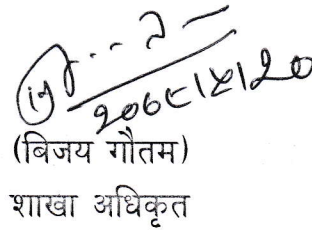 २०७९।५।२०
(बिजय गौतम)
शाखा अधिकृत